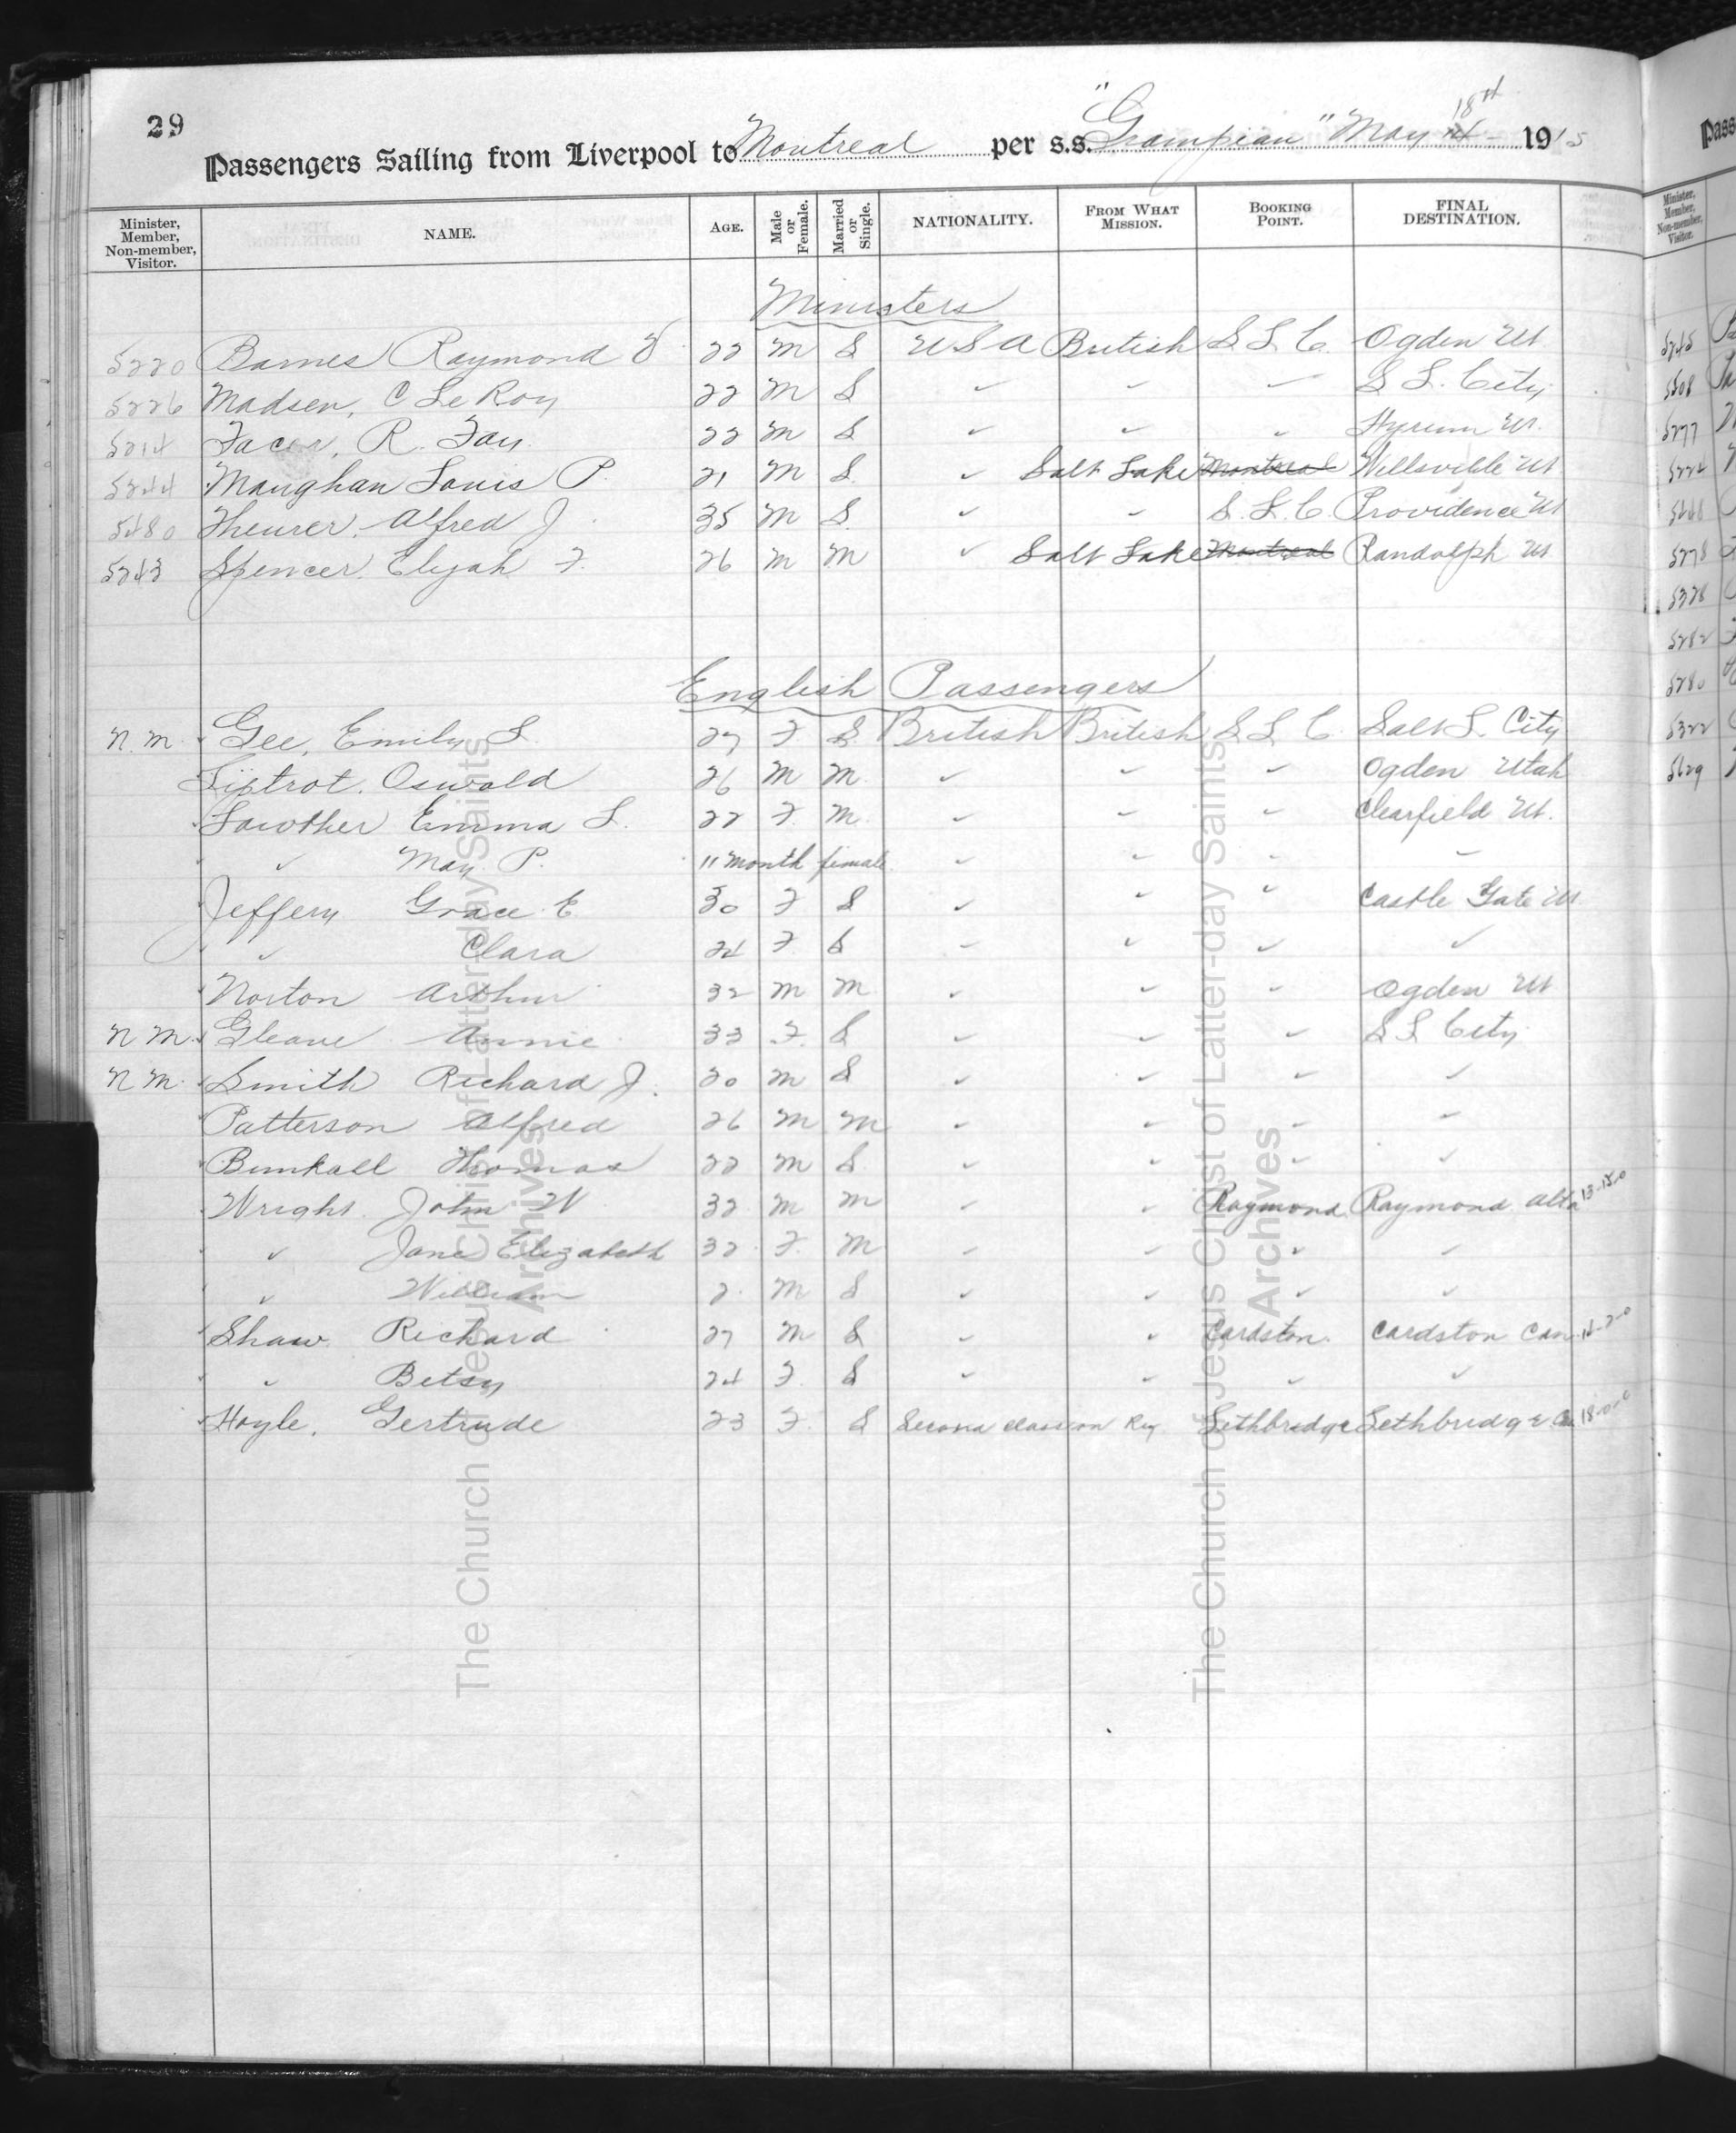 29
Passengers Sailing from Liverpool to Montreal per s.s. "Grampian" May 18th 1915
Minister, Member, Non-member, Visitor. NAME. AGE. Male or Female. Married or Single. NATIONALITY. FROM WHAT MISSION. BOOKING POINT. FINAL DESTINATION.
Ministers
5220 Barnes Raymond 22 M S U S A British S L C. Ogden Ut
5226 Madsen, C Le Roy 22 M S ✓ ✓ ✓ S L. City
5214 Facer, R. Fay 22 M S ✓ ✓ ✓ Hyrum Ut.
5244 Maughan Louis P. 21 M S. ✓ Salt Lake Montreal Wellsville Ut
5480 Theurer, Alfred J. 35 M S. ✓ ✓ S. L. C. Providence Ut
5243 Spencer, Elijah F. 26 M M ✓ Salt Lake Montreal Randolph Ut
English Passengers
N. M. Gee, Emily S. 27 F S. British British S L C Salt L. City
Liptrot, Oswald 26 M M. ✓ ✓ ✓ Ogden Utah
Lowther Emma L. 22 F. M. ✓ ✓ ✓ Clearfield Ut.
✓ May P. 11 month female ✓ ✓ ✓ ✓
Jeffery Grace E 30 F S ✓ ✓ ✓ Castle Gate Ut
✓ Clara 24 F. S ✓ ✓ ✓ ✓
Norton Arthur 32 M M ✓ ✓ ✓ Ogden Ut
N M. Gleave Annie 33 F. S ✓ ✓ ✓ S L City
N M. Smith Richard J. 20 M S ✓ ✓ ✓ ✓
Patterson Alfred 26 M M ✓ ✓ ✓ ✓
Bunkall Thomas 22 M S. ✓ ✓ ✓ ✓
Wright John W 32 M M ✓ ✓ Raymond Raymond Alta 13-15-0
✓ Jane Elizabeth 32 F. M ✓ ✓ ✓ ✓
✓ William 2. M S ✓ ✓ ✓ ✓
Shaw Richard 27 M S ✓ ✓ Cardston. Cardston Can 14-2-0
✓ Betsy 24 F. S ✓ ✓ ✓ ✓
Hoyle, Gertrude 23 F. S Second class on Ry Lethbridge Lethbridge Can 18-0-0
The Church of Jesus Christ of Latter-day Saints
Archives
The Church of Jesus Christ of Latter-day Saints
Archives
Pass
Minister, Member, Non-member, Visitor.
5245
5208
5277
5278
5378
5282
5280
5322
5629